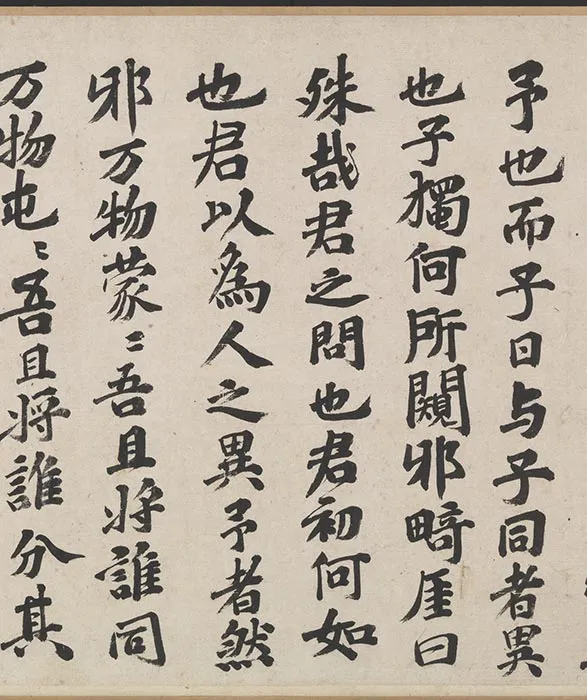 予也而子曰与子同者異
也子獨何所闚邪畸厓曰
殊哉君之問也君初何如
也君以為人之異予者然
邪万物蒙〻吾且將誰同
万物芚〻吾且將誰分其